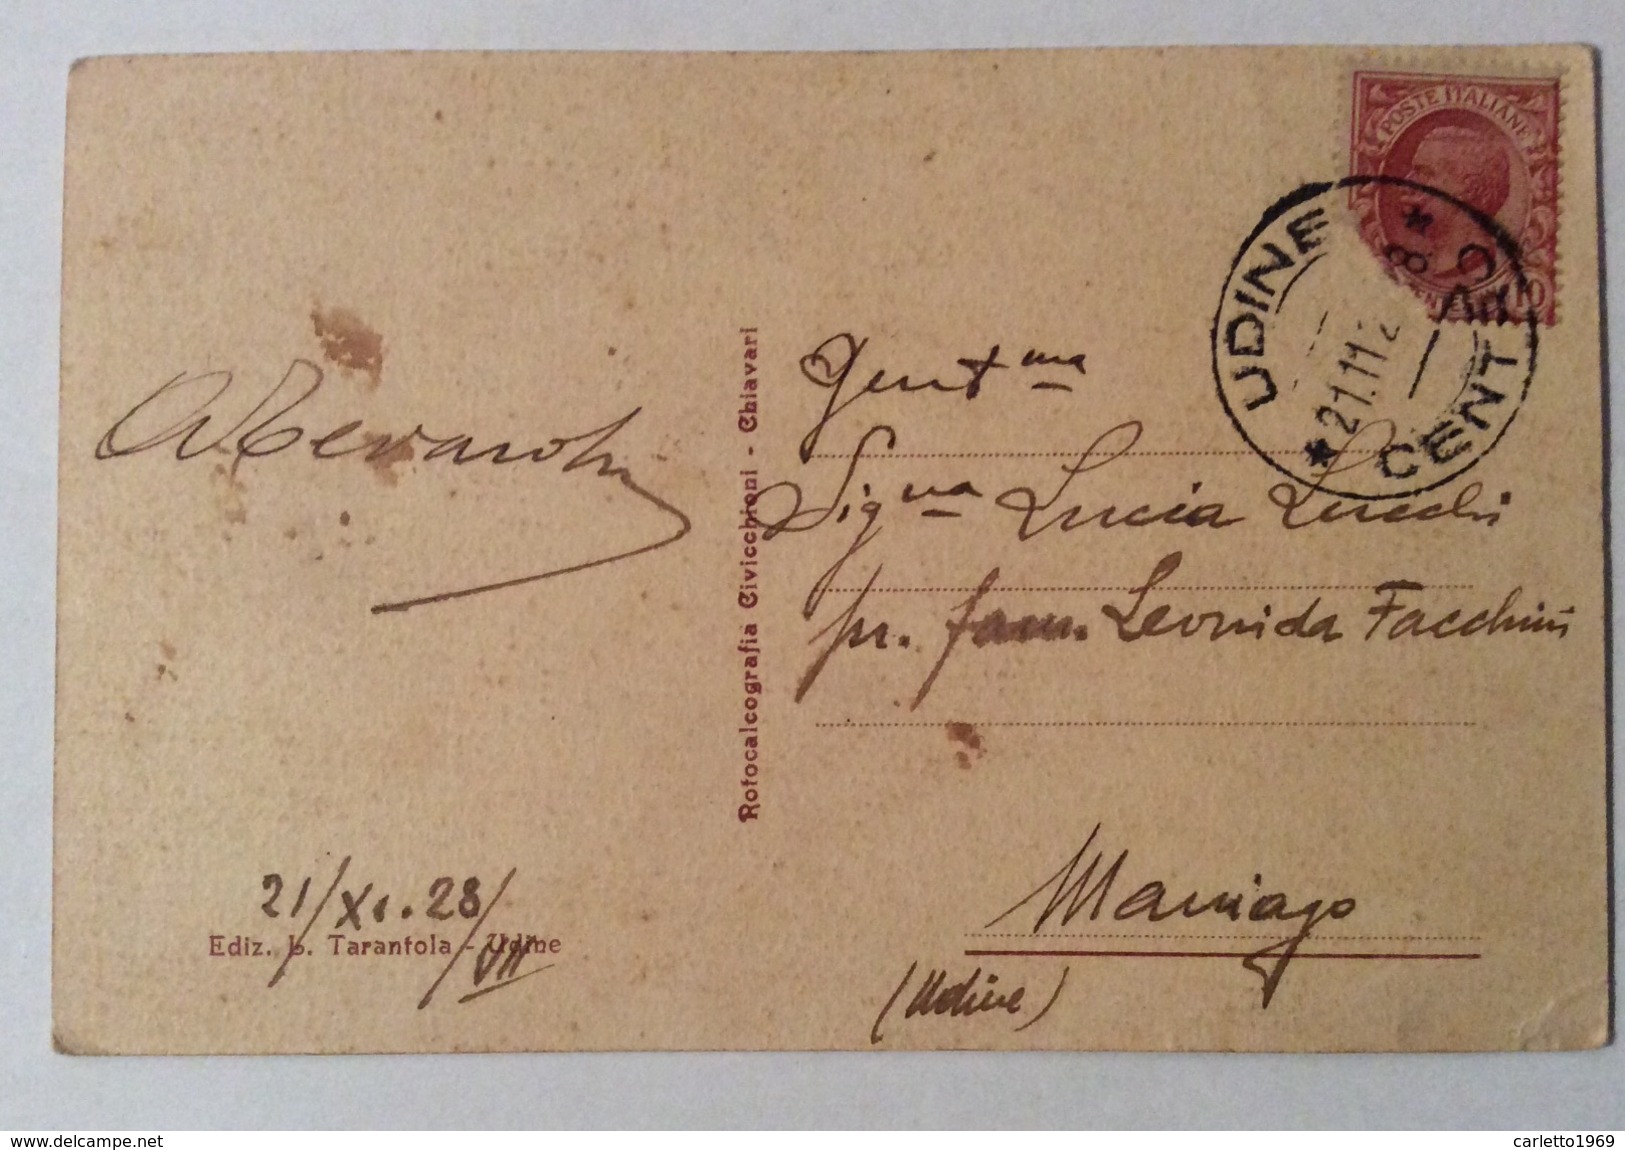 POSTE ITALIANE
10
UDINE
CENTRO
* 8
* 21.11.2
Gent.ma
Sig.na Lucia Lucchi
pr. fam. Leonida Facchini
Maniago
(Udine)
21/XI.28/VII
Ediz. L. Tarantola - Udine
Rotocalcografia Civicchioni - Chiavari
www.delcampe.net
carletto1969